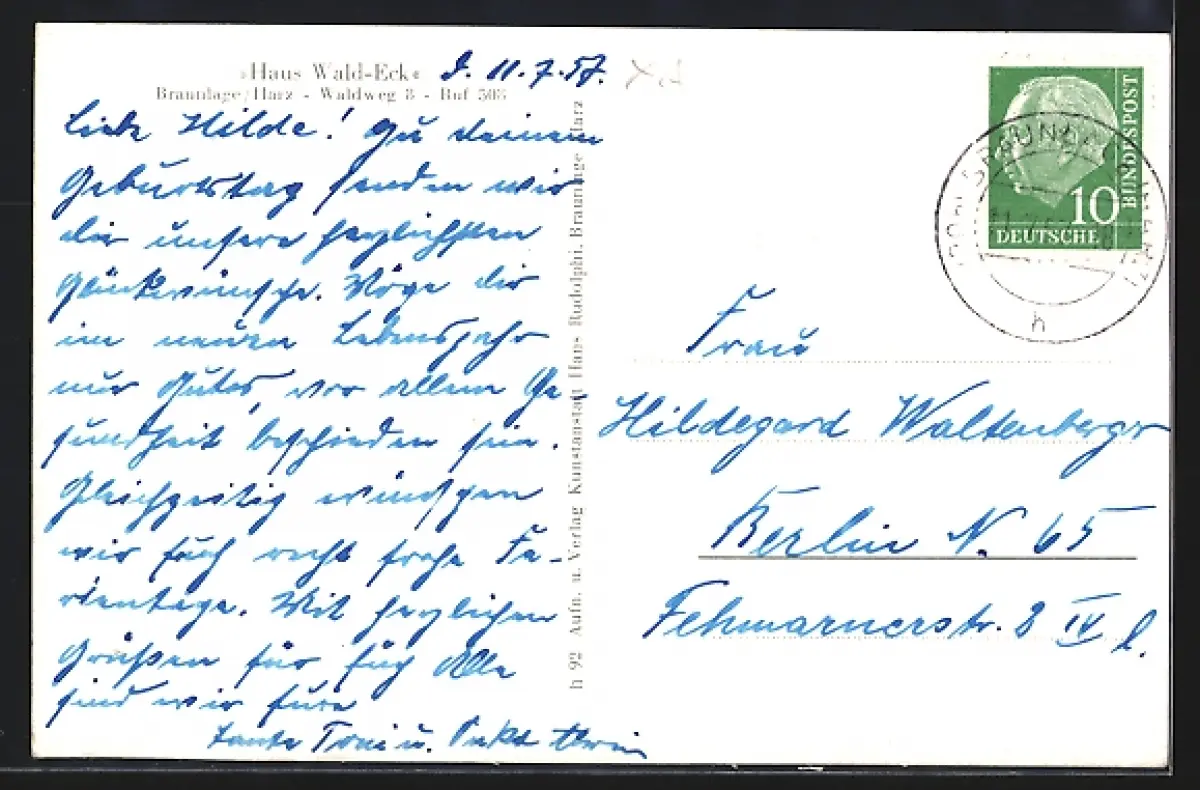 »Haus Wald-Eck«
Braunlage/Harz - Waldweg 8 - Ruf 503
d. 11.7.57.
Liebe Hilde! Zu deinem
Geburtstag senden wir
dir unsere herzlichsten
Glückwünsche. Möge dir
im neuen Lebensjahr
nur Gutes, vor allem Ge-
sundheit beschieden sein.
Gleichzeitig wünschen
wir Euch recht frohe Fe-
rientage. Mit herzlichen
Grüßen für Euch Alle
sind wir Eure
Tante Toni u. Onkel
h 92 Aufn. u. Verlag Kunstanstalt Hans Rudolphi, Braunlage/Harz
10
DEUTSCHE
BUNDESPOST
h
Frau
Hildegard Waltenberger
Berlin N. 65
Fehmarnerstr. 8 IV l.